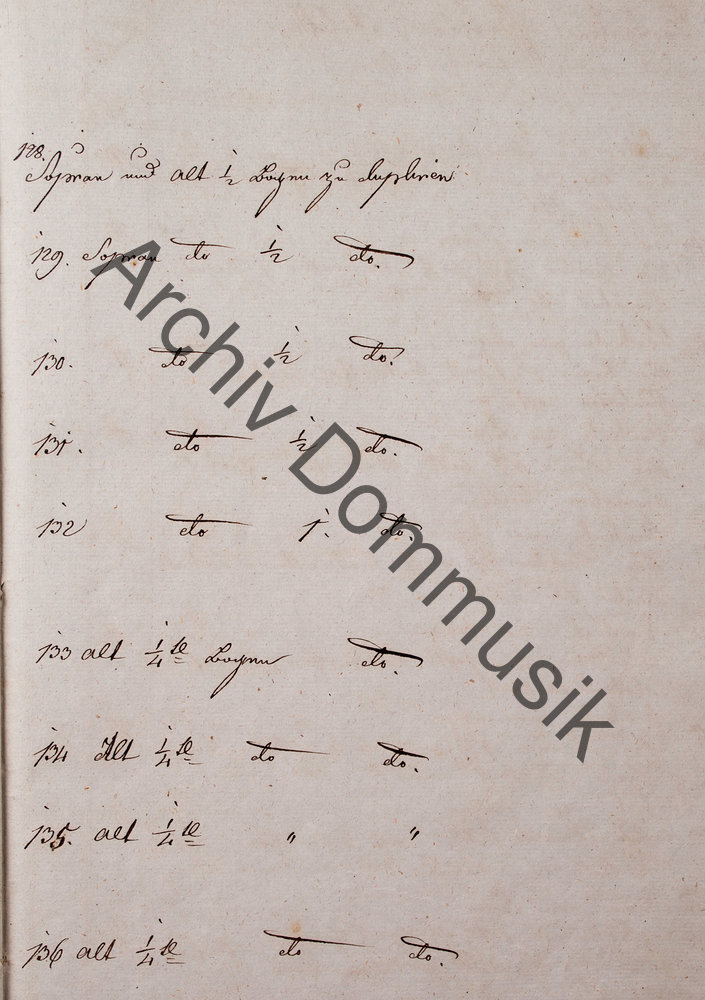 128.
Sopran und alt 1/2 Bogen zu dupliren
129. Sopran do 1/2 do.
130. do 1/2 do.
131. do 1/2 do.
132 do 1. do.
133 alt 1/4 te Bogen do.
134 Alt 1/4 te do do.
135. alt 1/4 te " "
136 alt 1/4 te do do.
Archiv Dommusik